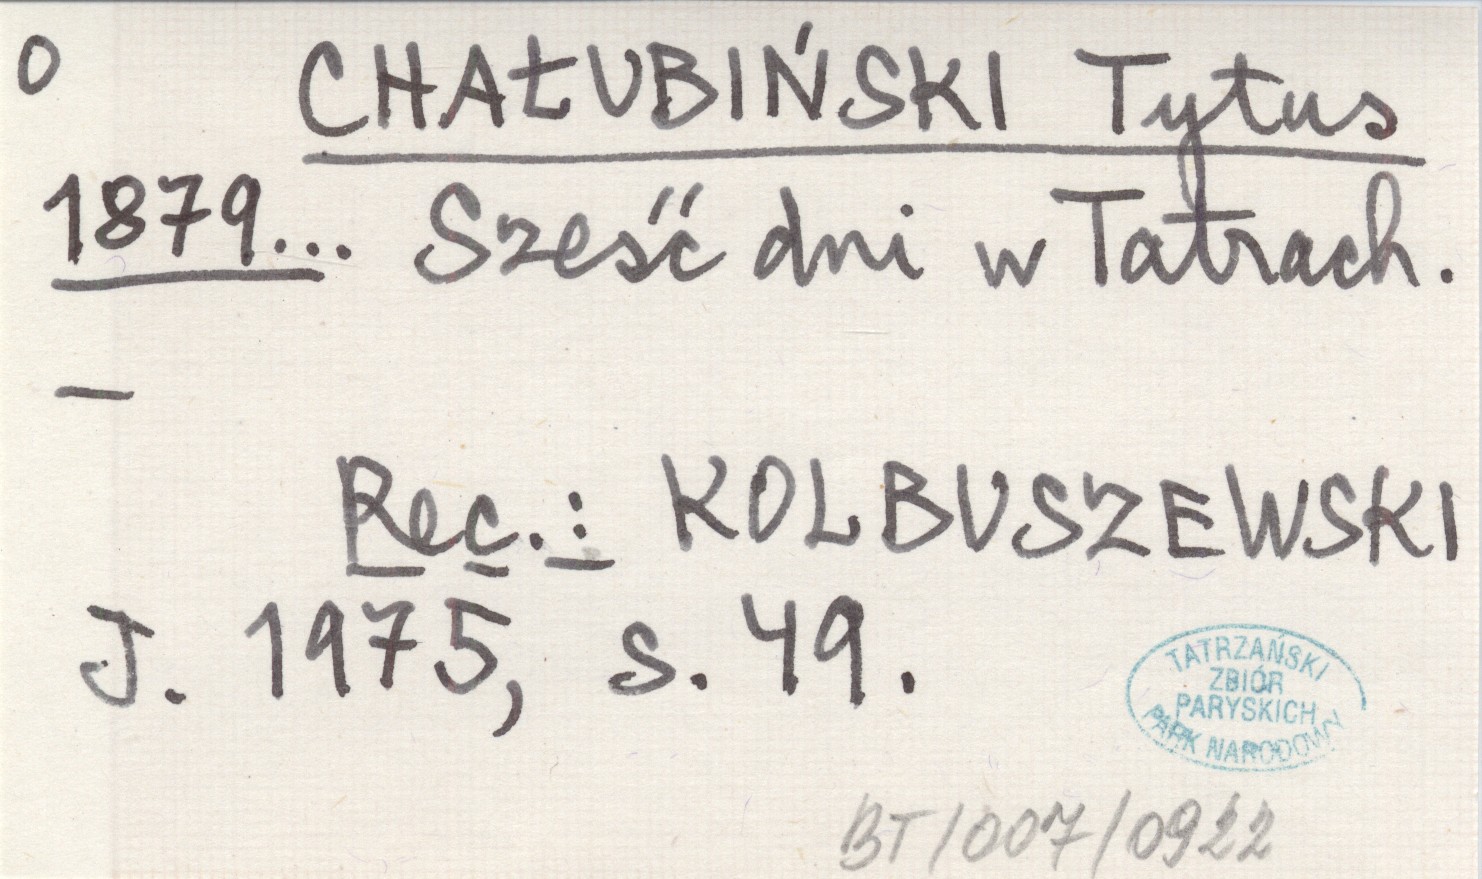 O CHAŁUBIŃSKI Tytus
1879... Sześć dni w Tatrach.
—
Rec.: KOLBUSZEWSKI
J. 1975, s. 49.
TATRZAŃSKI
ZBIÓR
PARYSKICH
PARK NARODOWY
BT/007/0922